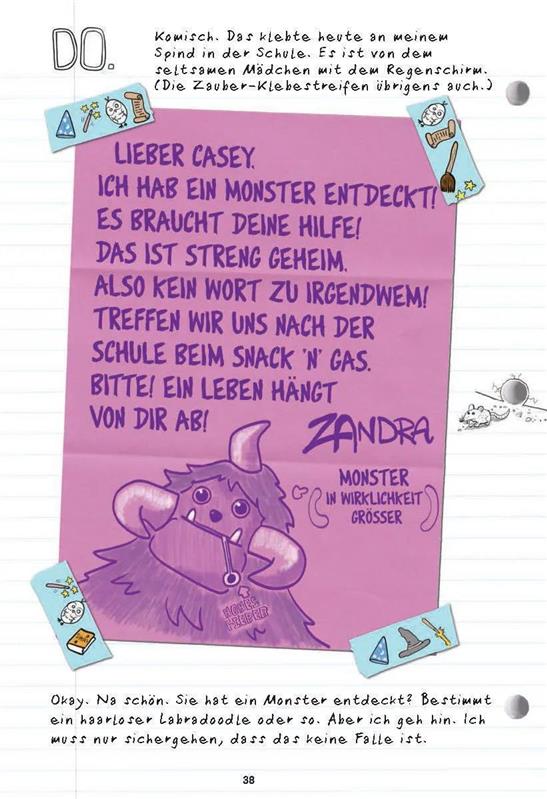 DO.
Komisch. Das klebte heute an meinem
Spind in der Schule. Es ist von dem
seltsamen Mädchen mit dem Regenschirm.
(Die Zauber-Klebestreifen übrigens auch.)
LIEBER CASEY.
ICH HAB EIN MONSTER ENTDECKT!
ES BRAUCHT DEINE HILFE!
DAS IST STRENG GEHEIM.
ALSO KEIN WORT ZU IRGENDWEM!
TREFFEN WIR UNS NACH DER
SCHULE BEIM SNACK 'N' GAS.
BITTE! EIN LEBEN HÄNGT
VON DIR AB!
ZANDRA
MONSTER
IN WIRKLICHKEIT
GRÖSSER
HOHES
FIEBER
Okay. Na schön. Sie hat ein Monster entdeckt? Bestimmt
ein haarloser Labradoodle oder so. Aber ich geh hin. Ich
muss nur sichergehen, dass das keine Falle ist.
38